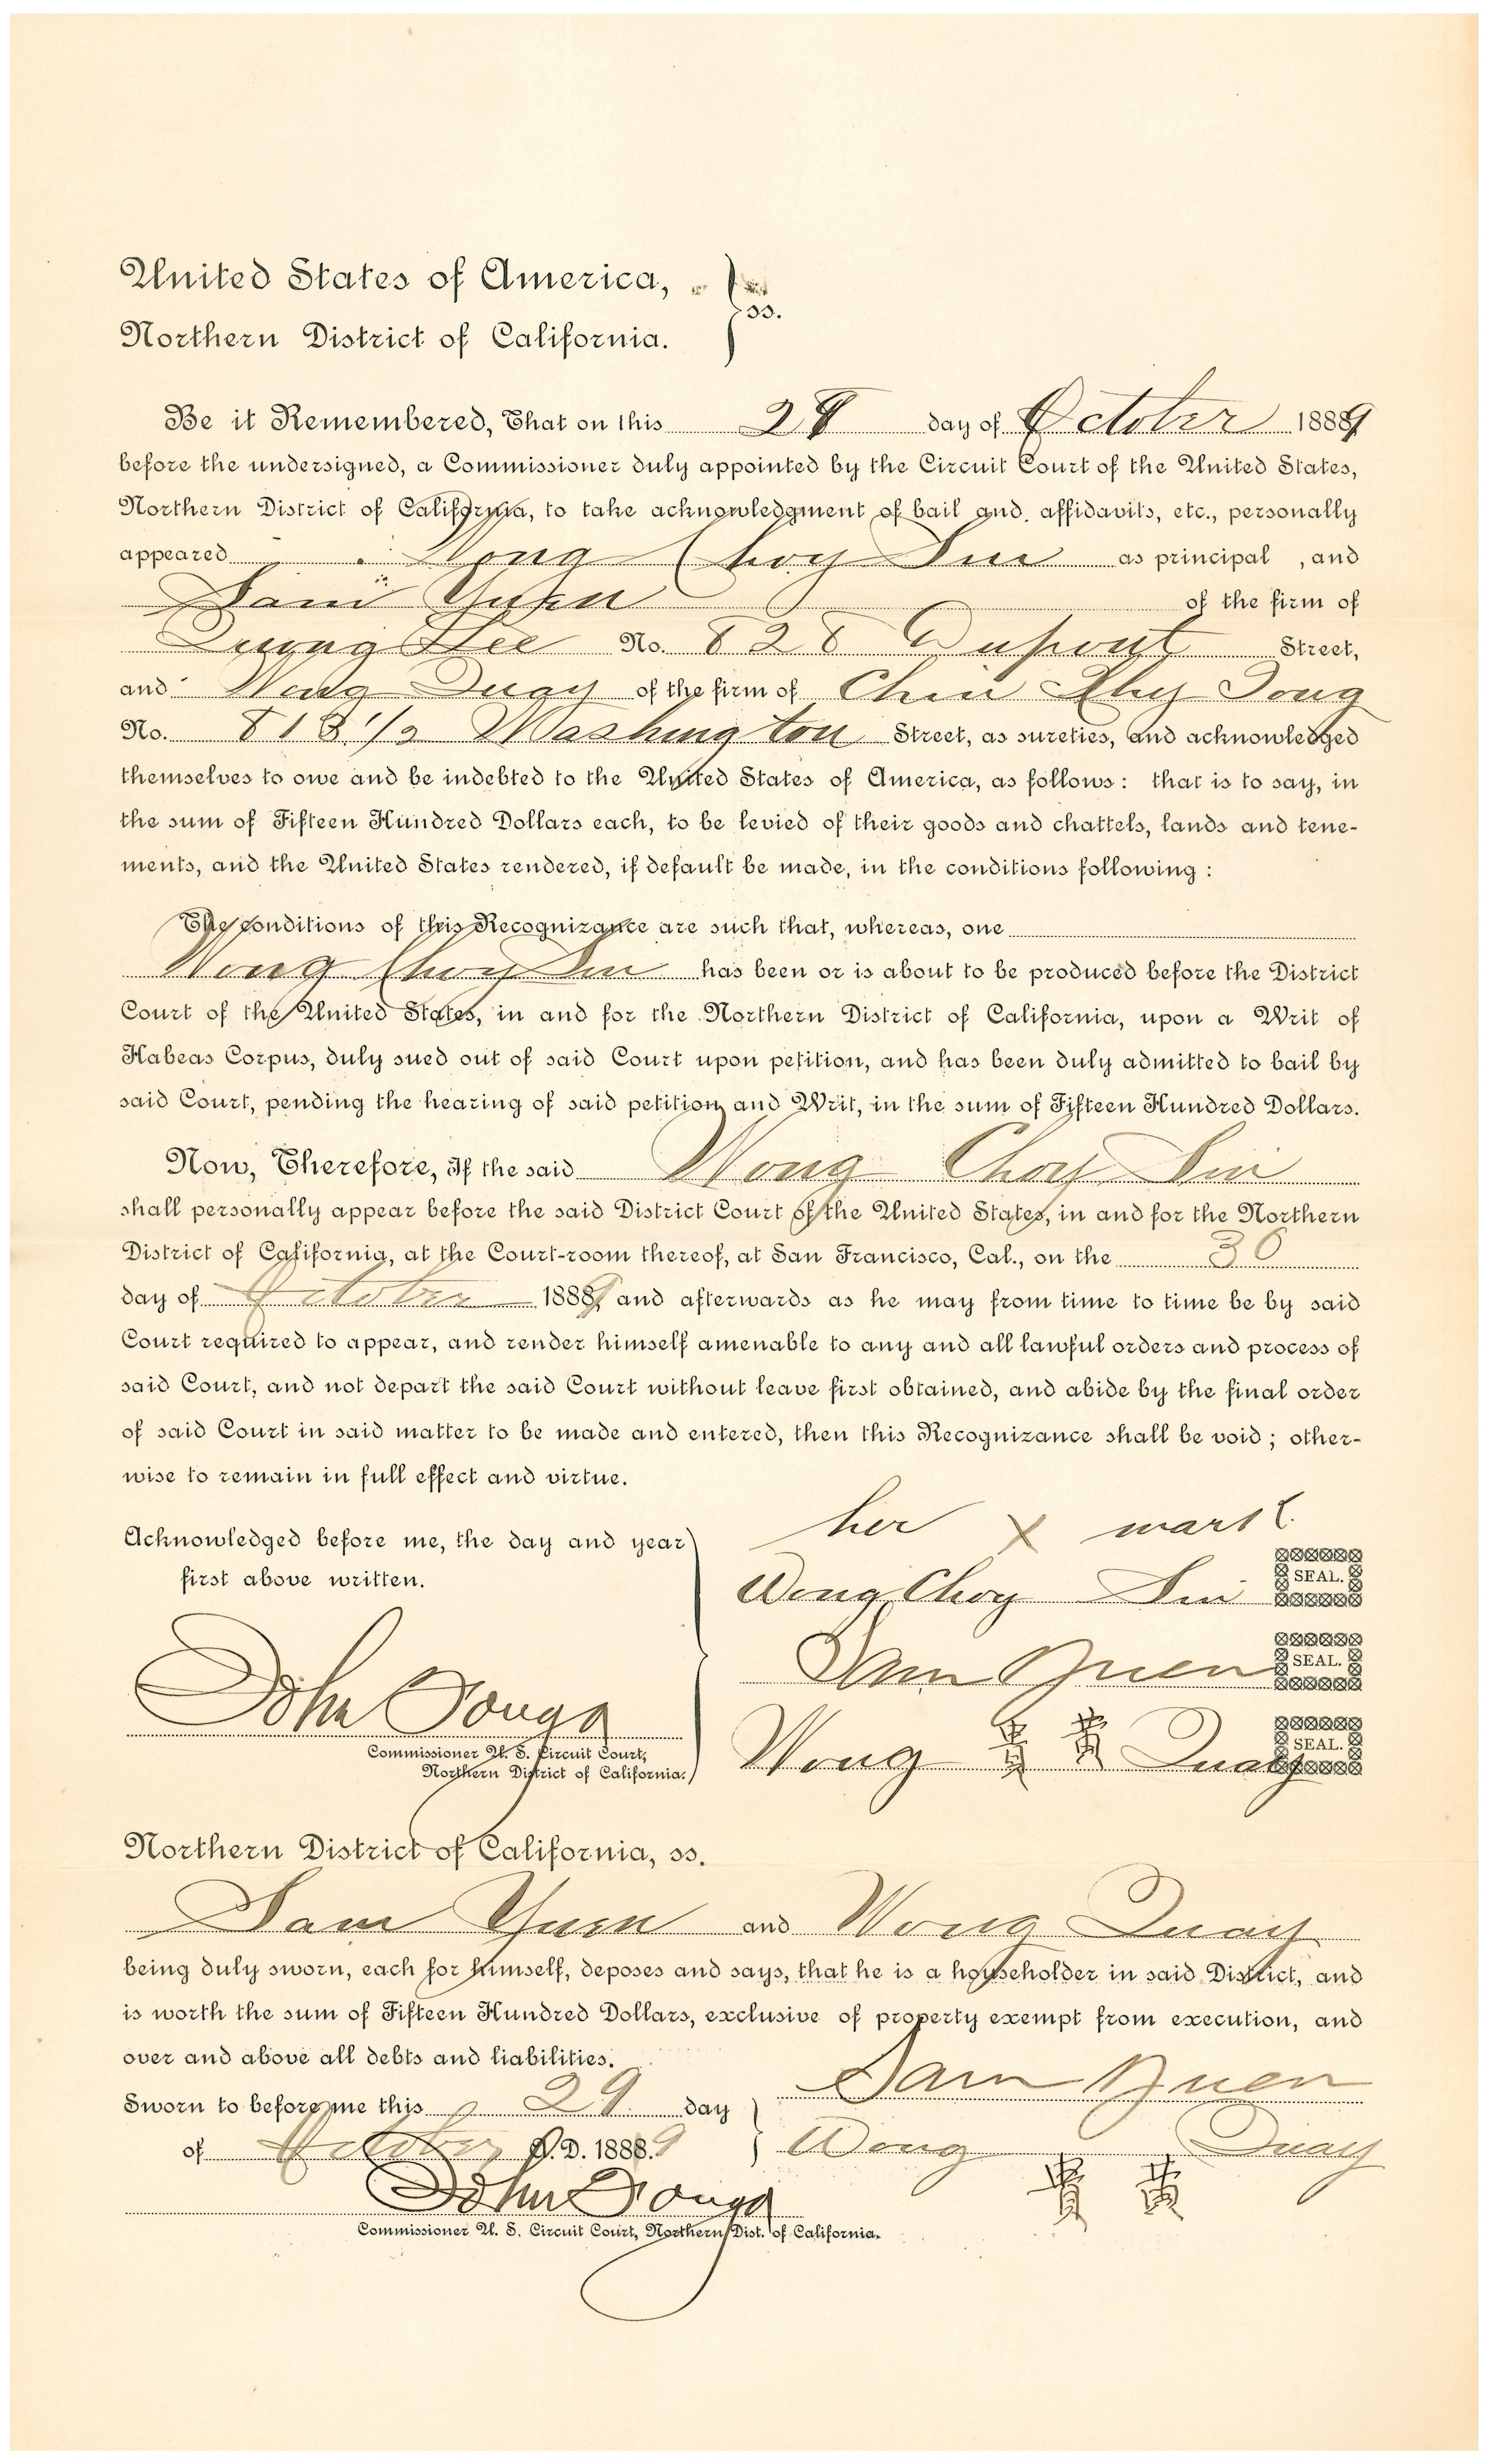 United States of America,
Northern District of California. } ss.
Be it Remembered, That on this 29 day of October 18889
before the undersigned, a Commissioner duly appointed by the Circuit Court of the United States,
Northern District of California, to take acknowledgment of bail and affidavits, etc., personally
appeared Wong Choy Sin as principal, and
Sam Yuen of the firm of
Quong Lee No. 828 Dupont Street,
and Wong Quay of the firm of Chin Tong
No. 818 1/2 Washington Street, as sureties, and acknowledged
themselves to owe and be indebted to the United States of America, as follows: that is to say, in
the sum of Fifteen Hundred Dollars each, to be levied of their goods and chattels, lands and tene-
ments, and the United States rendered, if default be made, in the conditions following:
The conditions of this Recognizance are such that, whereas, one
Wong Choy Sin has been or is about to be produced before the District
Court of the United States, in and for the Northern District of California, upon a Writ of
Habeas Corpus, duly sued out of said Court upon petition, and has been duly admitted to bail by
said Court, pending the hearing of said petition and Writ, in the sum of Fifteen Hundred Dollars.
Now, Therefore, If the said Wong Choy Sin
shall personally appear before the said District Court of the United States, in and for the Northern
District of California, at the Court-room thereof, at San Francisco, Cal., on the 30
day of October 18889, and afterwards as he may from time to time be by said
Court required to appear, and render himself amenable to any and all lawful orders and process of
said Court, and not depart the said Court without leave first obtained, and abide by the final order
of said Court in said matter to be made and entered, then this Recognizance shall be void; other-
wise to remain in full effect and virtue.
her x mark
Acknowledged before me, the day and year
first above written.
Wong Choy Sin SEAL.
Sam Yuen SEAL.
John Fouga
Commissioner U. S. Circuit Court,
Northern District of California.
Wong 貴 黄 Quay SEAL.
Northern District of California, ss.
Sam Yuen and Wong Quay
being duly sworn, each for himself, deposes and says, that he is a householder in said District, and
is worth the sum of Fifteen Hundred Dollars, exclusive of property exempt from execution, and
over and above all debts and liabilities.
Sam Yuen
Sworn to before me this 29 day
of October A.D. 1888.9
Wong Quay
貴 黄
John Fouga
Commissioner U. S. Circuit Court, Northern Dist. of California.